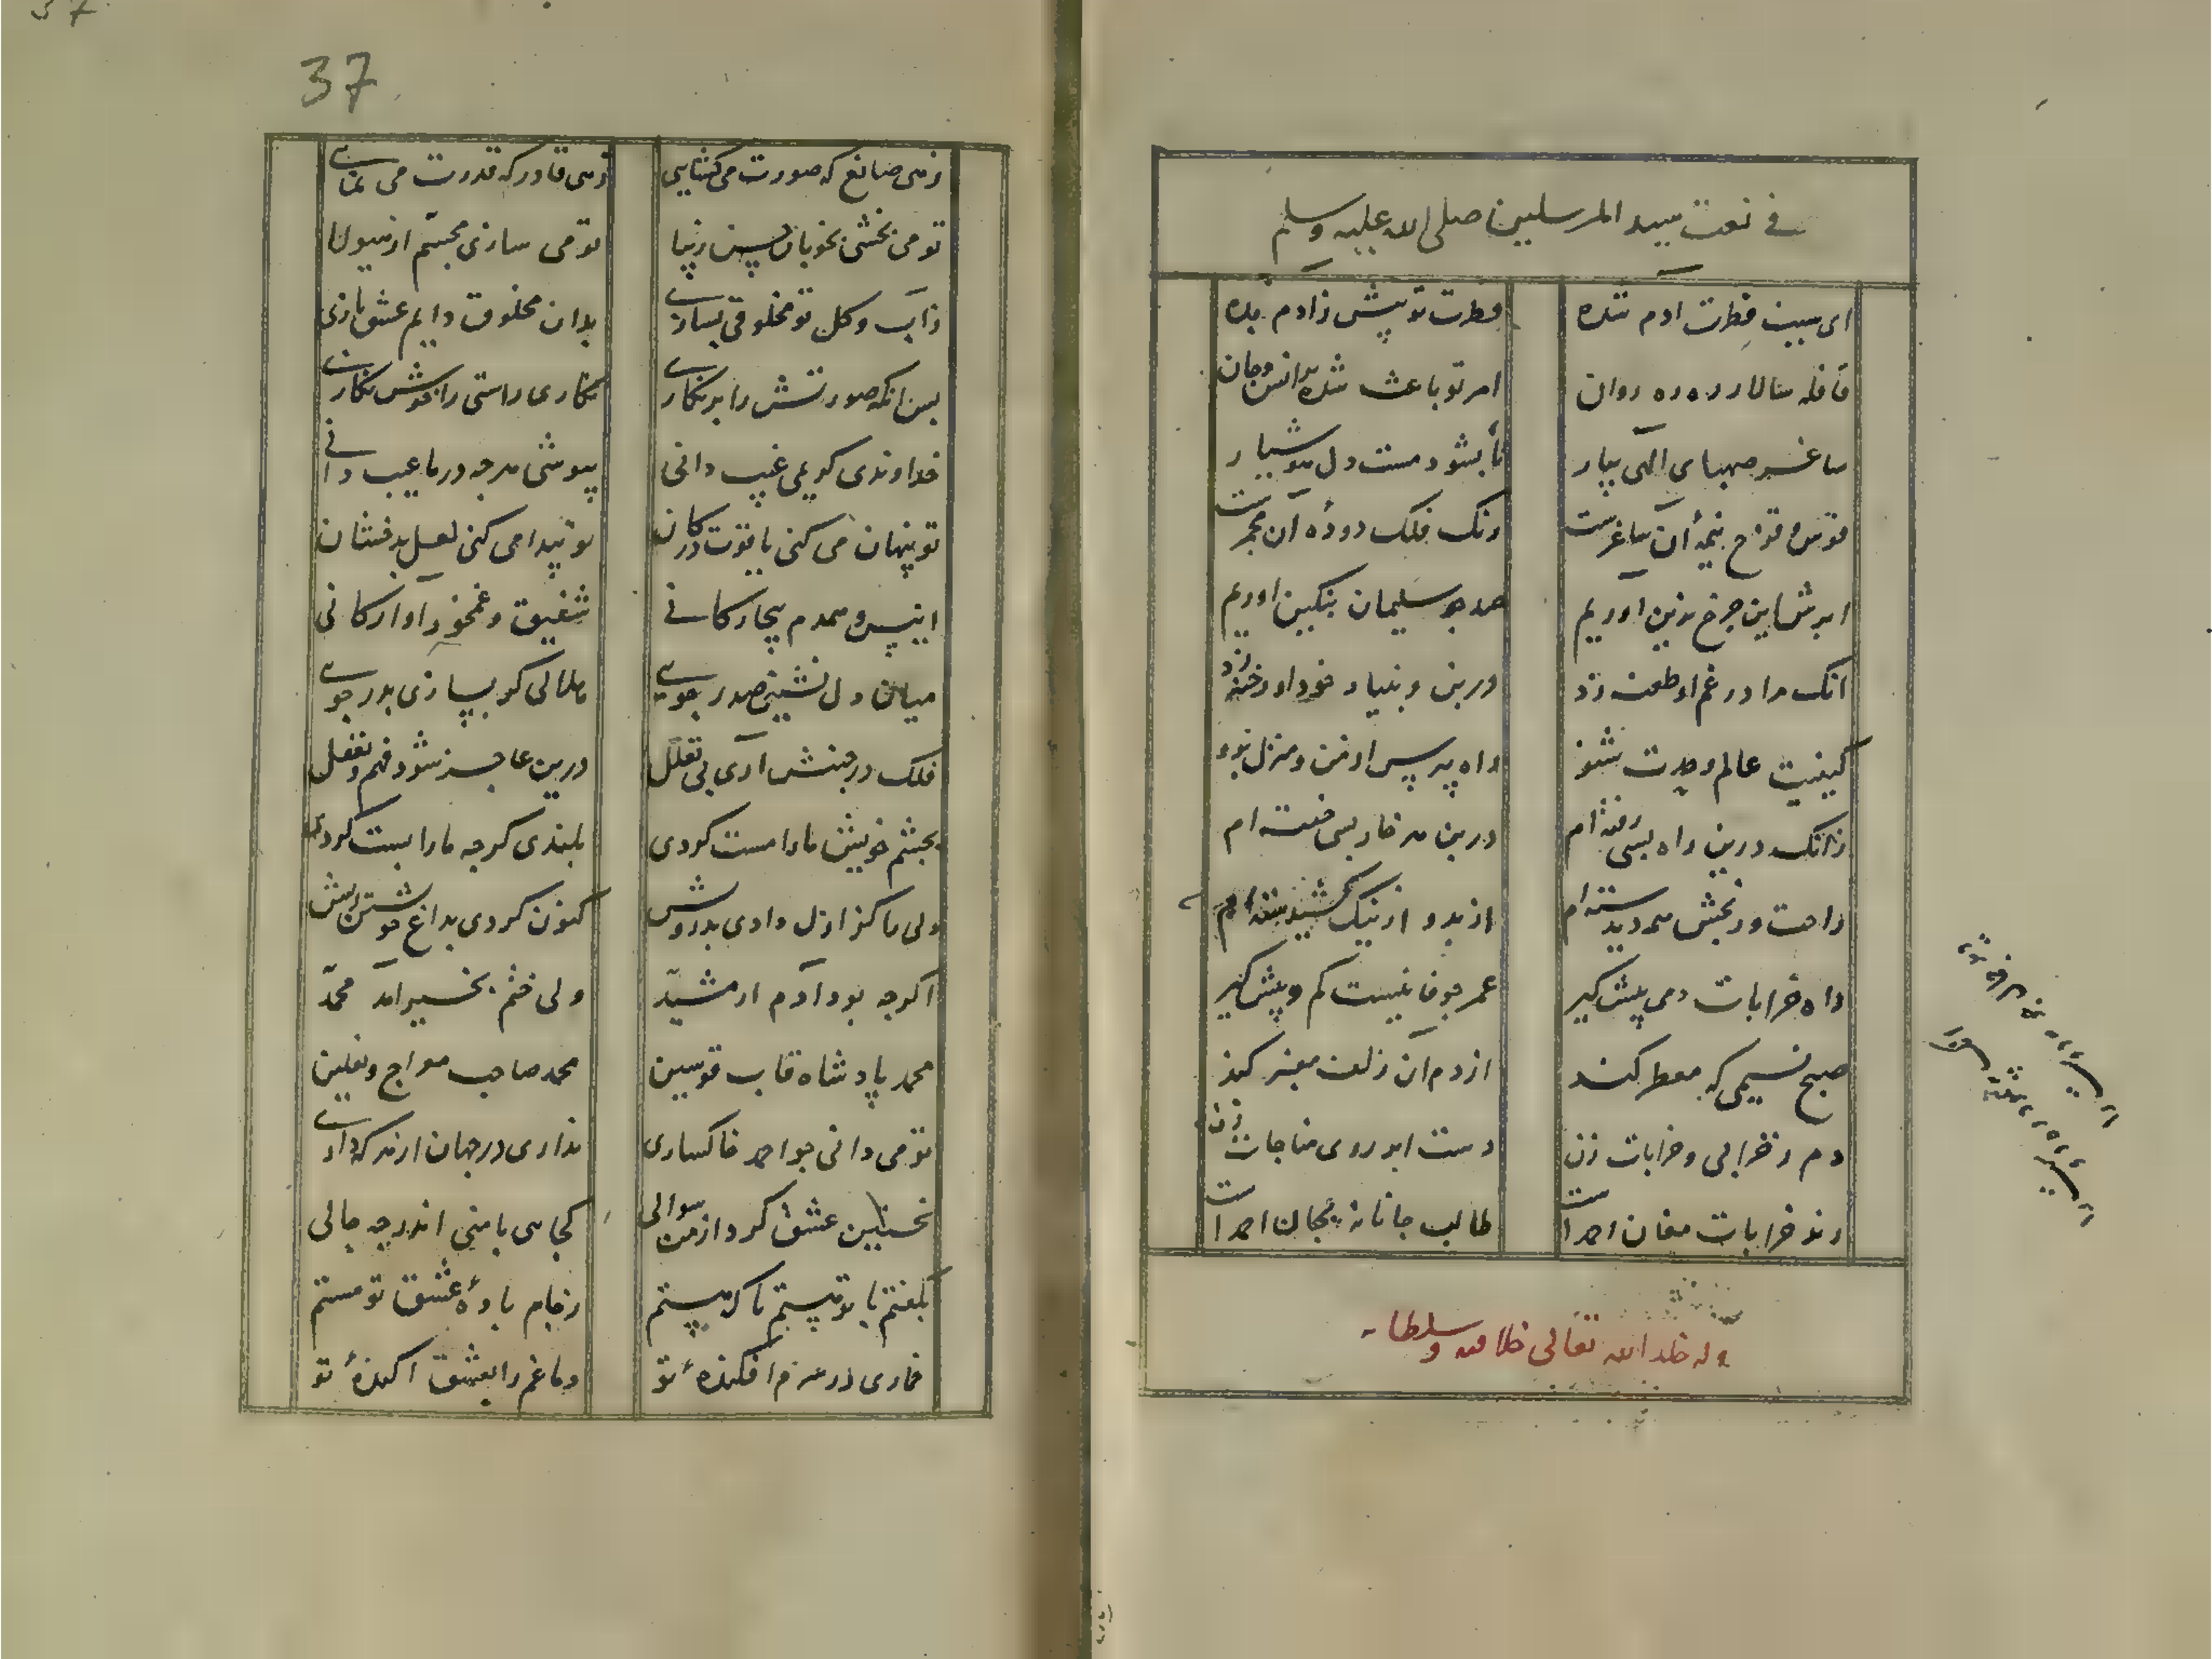 37
فی نعت سید المرسلین صلی الله علیه وسلم
ای سبب فطرت ادم شده فطرت تو پیش زادم بده
قافله سالار ره روان امر تو باعث شده بر انس و جان
ساغر صهبای الهی بیار تا بشود مست دل هوشیار
قوس و قزح نیمهٔ آن ساغرست ونک فلک دودهٔ آن مجمرست
ابرش این چرخ بزین اوریم همجو سلیمان بنکین اوریم
انک مرا در غم او طعنه زد در بن و بنیاد خود او رخنه زد
کیفیت عالم وحدت شنو راه بپرس از من و منزل برو
زانک درین راه بسی رفته ام درین هر خار بسی خفته ام
راحت و رنجش همه دیدسته ام از بد و از نیک شنیدسته ام
راه خرابات دمی پیش کیر عمر جو فانیست کم و پیش کیر
صبح نسیمی که معطر کند از دم آن زلف معنبر کند
دم ز خرابی و خرابات زن دست ابر روی مناجات زن
رند خرابات مغان احمد است طالب جانانه بجان احمد است
وله خلد الله تعالی خلافته وسلطانه
زهی صانع که صورت می کشایی زهی قادر که قدرت می نمایی
تو می بخشی بخوبان حسن زیبا تو می سازی مجسم از هیولا
ز آب و کل تو مخلوقی بسازی بدان مخلوق دایم عشق بازی
پس انکه صورتش را بر نکاری نکاری راستی را خوش نکاری
خداوندی کریمی غیب دانی بپوشی هرجه در ما عیب دانی
تو پنهان می کنی یاقوت در کان تو پیدا می کنی لعل بدخشان
انیس و همدم بیچارکانی شفیق و غمخور آوارکانی
میان دل نشینی صدر جویی ملالی کر بسازی بدر جویی
فلک در جنبش آری بی تعلل درین عاجز شود فهم و تعقل
بجشم خویش مارا مست کردی بلندی کرجه مارا پست کردی
ولی ما کز ازل دادی بدرویش کنون کردی بداغ خویشتن ریش
اکرجه بود آدم ار مشید ولی ختم بخیر امد محمد
محمد پادشاه قاب قوسین محمد صاحب معراج و نعلین
تو می دانی جو احمد خاکساری نداری در جهان ار هر که داری
نخستین عشق کرد از من سوالی کجایی با منی اندر جه حالی
بکفتم با تو هستم تا که هستم ز جام بادهٔ عشق تو مستم
خماری در سرم افکندهٔ تو دماغم را بعشق اکندهٔ تو